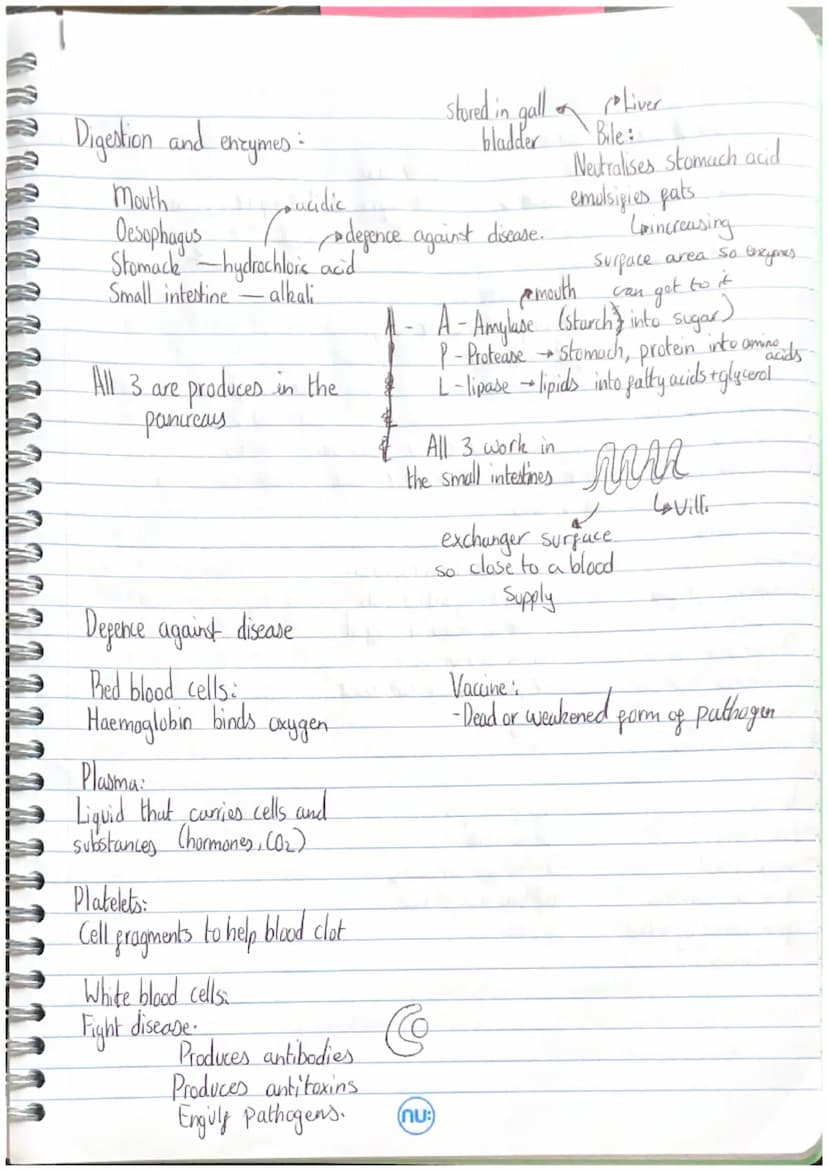 stored in gall
bladder
Liver
Bile:
Neutralises stomach acid
emulsifies fats
increasing
surface area so enzymes
can get to it
Digestion and enzymes:
Mouth
Oesophagus
Stomach – hydrochloric acid
Small intestine – alkali
acidic
defence against disease.
mouth
A - Amylase (starch into sugar)
P - Protease → stomach, protein into amino acids
L - lipase → lipids into fatty acids + glycerol
All 3 are produces in the
pancreas
All 3 work in
the small intestines
Villi
exchanger surface
so close to a blood
supply
Defence against disease
Red blood cells:
Haemoglobin binds oxygen
Vaccine:
-Dead or weakened form of pathogen
Plasma:
Liquid that carries cells and
substances (hormones, CO2)
Platelets:
Cell fragments to help blood clot
White blood cells:
Fight disease.
Produces antibodies
Produces antitoxins
Engulf pathogens.
nu: